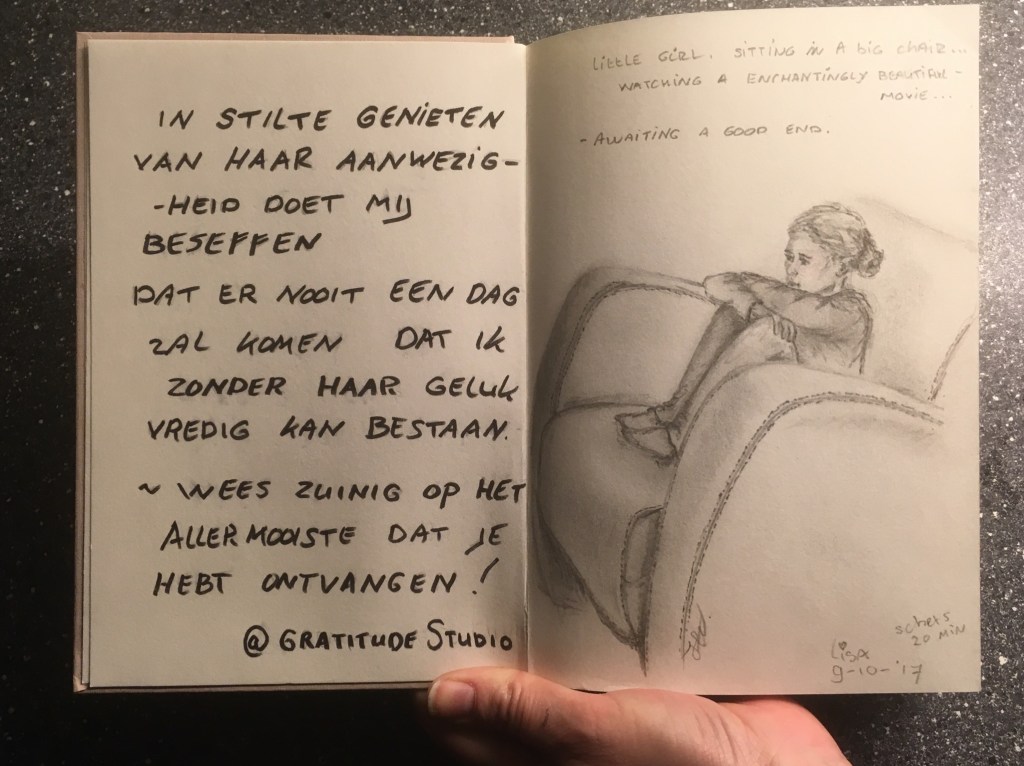 IN STILTE GENIETEN
VAN HAAR AANWEZIG-
-HEID DOET MIJ
BESEFFEN
DAT ER NOOIT EEN DAG
ZAL KOMEN DAT IK
ZONDER HAAR GELUK
VREDIG KAN BESTAAN.
~ WEES ZUINIG OP HET
ALLERMOOISTE DAT JE
HEBT ONTVANGEN!
@ GRATITUDE STUDIO
LITTLE GIRL. SITTING IN A BIG CHAIR...
WATCHING A ENCHANTINGLY BEAUTIFUL-
MOVIE...
- AWAITING A GOOD END.
schets
20 MIN
LISA
9-10-'17